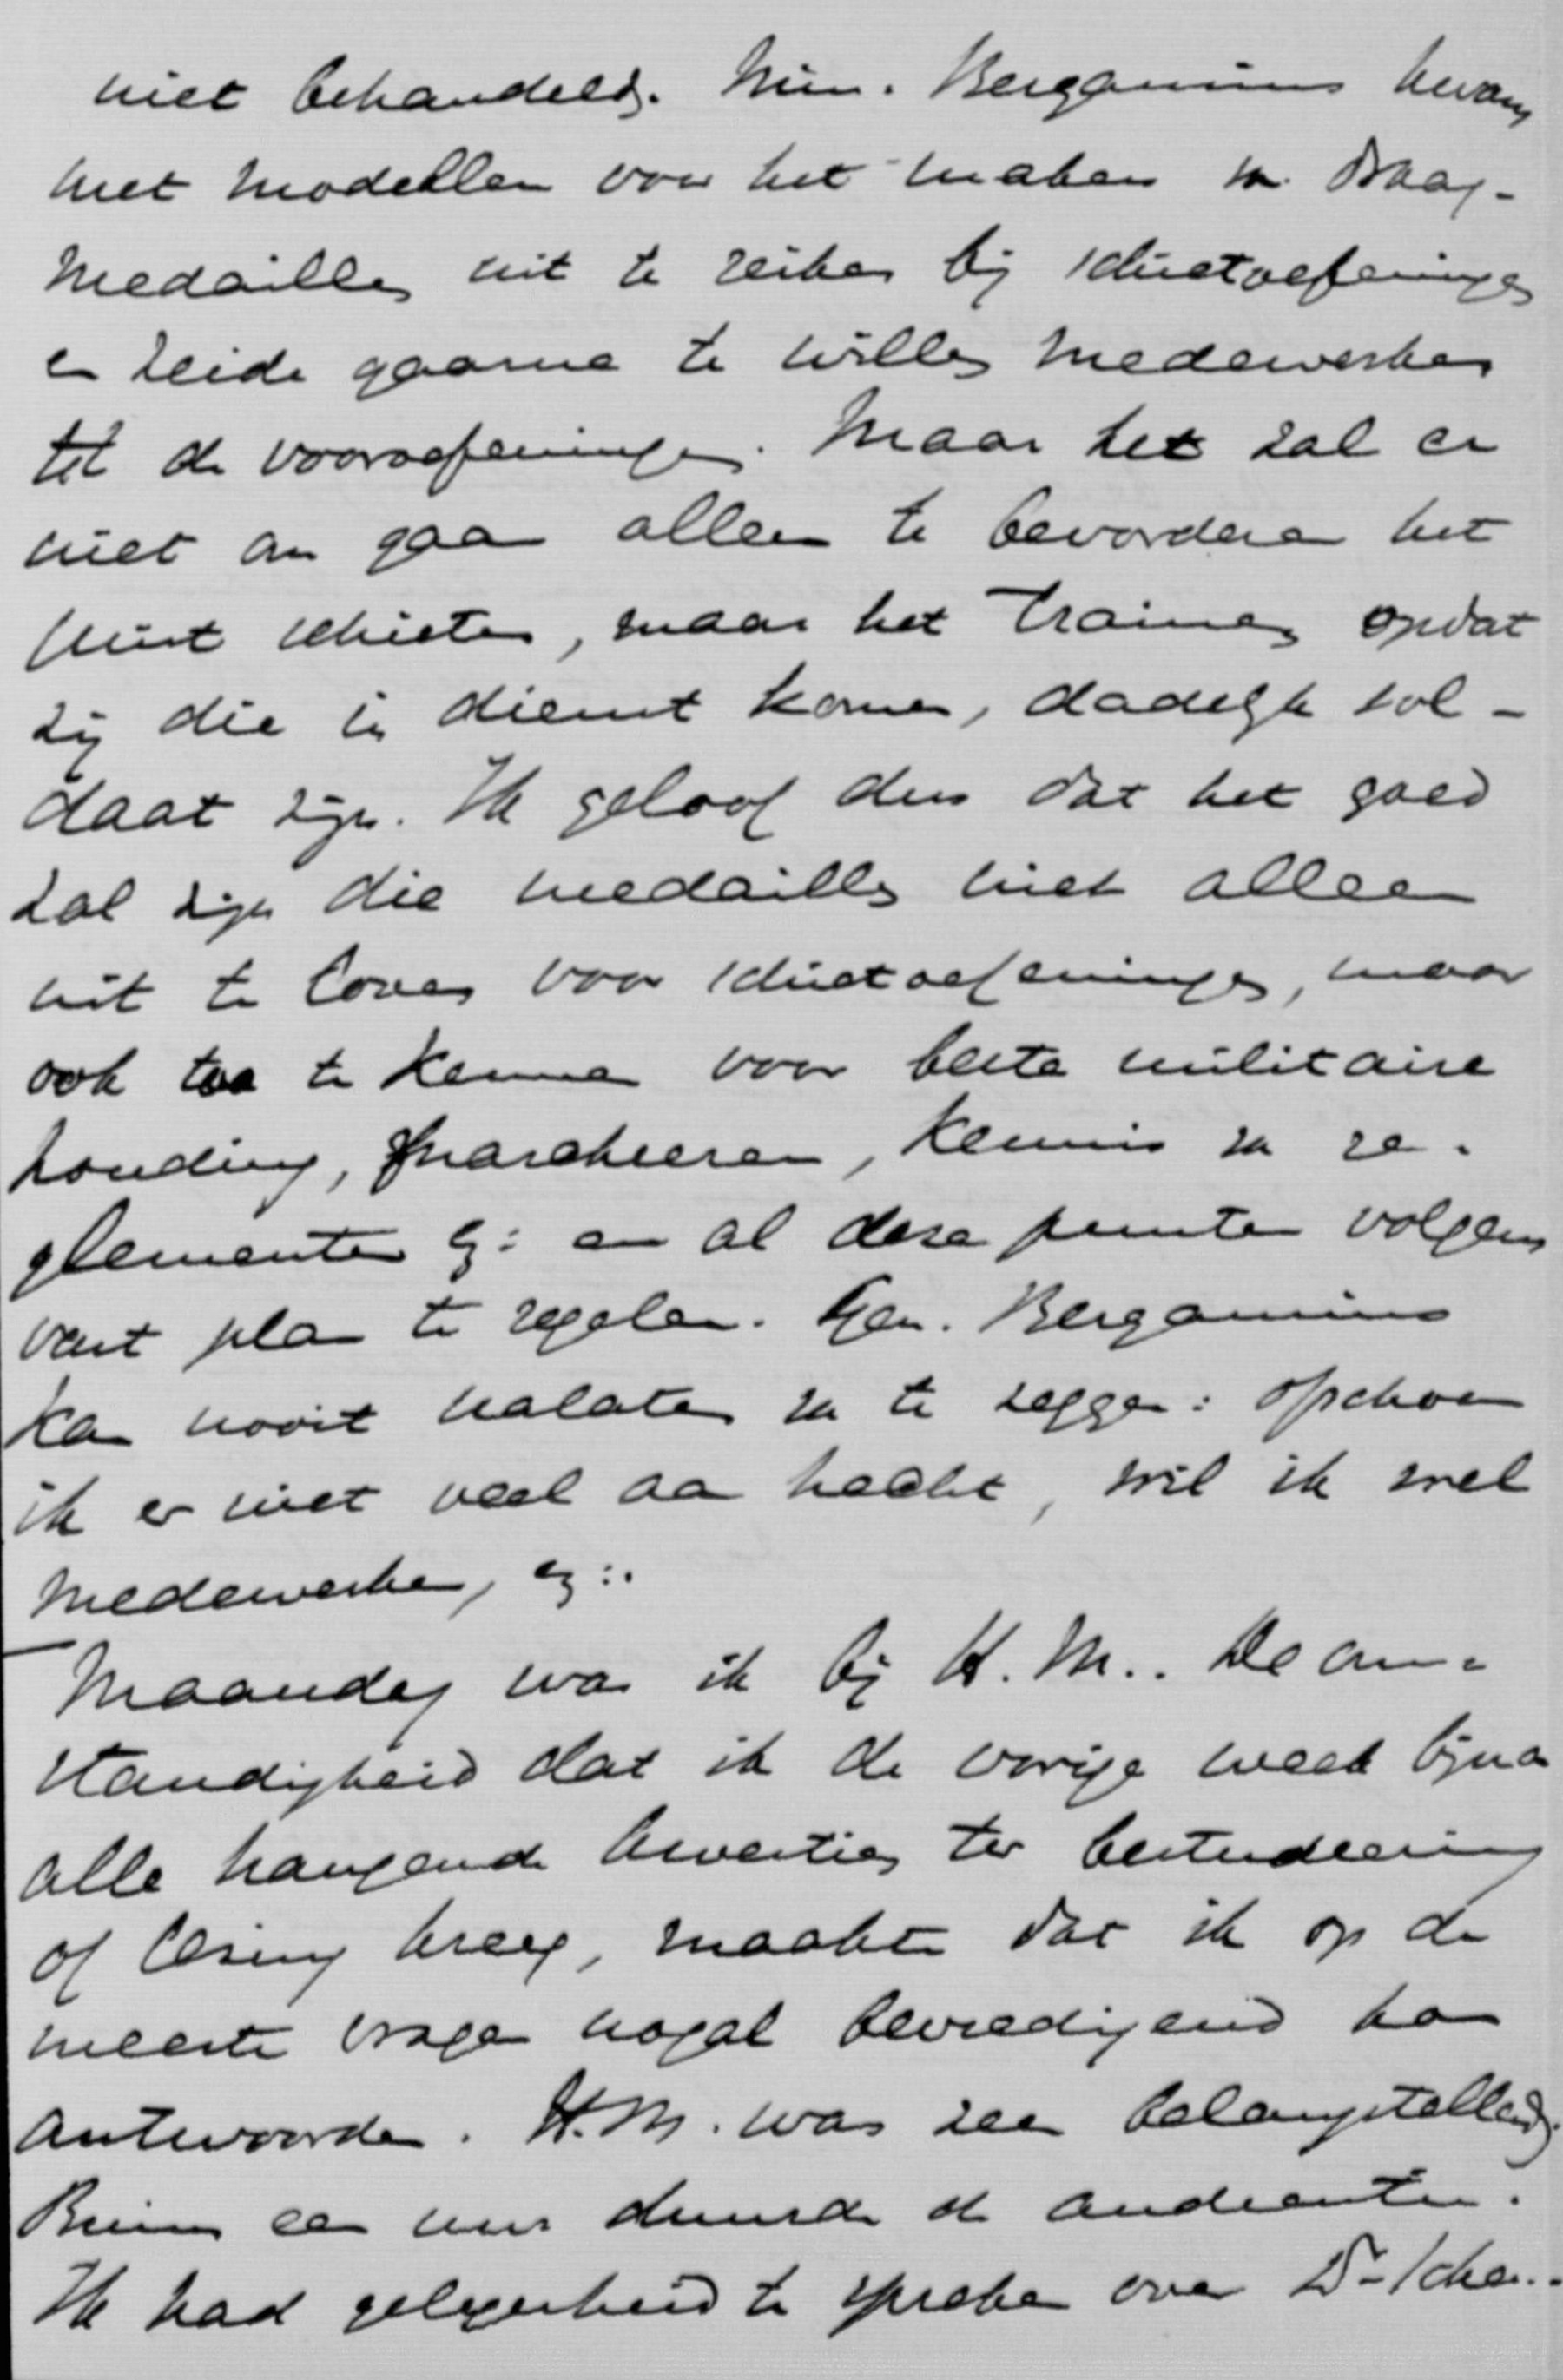 niet behandeld. Min. Bergansius kwam
met modellen voor het maken v. draag-
medailles uit te reiken bij schietoefeningen
en zeide gaarne te willen medewerken
tot de vooroefeningen. Maar het zal er
niet om gaan alleen te bevorderen het
juist schieten, maar het trainen opdat
zij die in dienst komen, dadelijk sol-
daat zijn. Ik geloof dus dat het goed
zal zijn die medailles niet alleen
uit te loven voor schietoefeningen, maar
ook toe te kennen voor beste militaire
houding, marcheeren, kennis van re-
glementen en al deze punten volgens
vast plan te regelen. Gen. Bergansius
kan nooit nalaten van te zeggen: ofschoon
ik er niet veel aan hecht, wil ik wel
medewerken,
Maandag was ik bij H.M.. De om-
standigheid dat ik de vorige week bijna
alle hangende kwesties ter bestudeering
of lezing kreeg, maakte dat ik op de
meeste vragen nogal bevredigend kon
antwoorden. H.M. was zeer belangstellend.
Ruim een uur duurde de audientie.
Ik had gelegenheid te spreken over